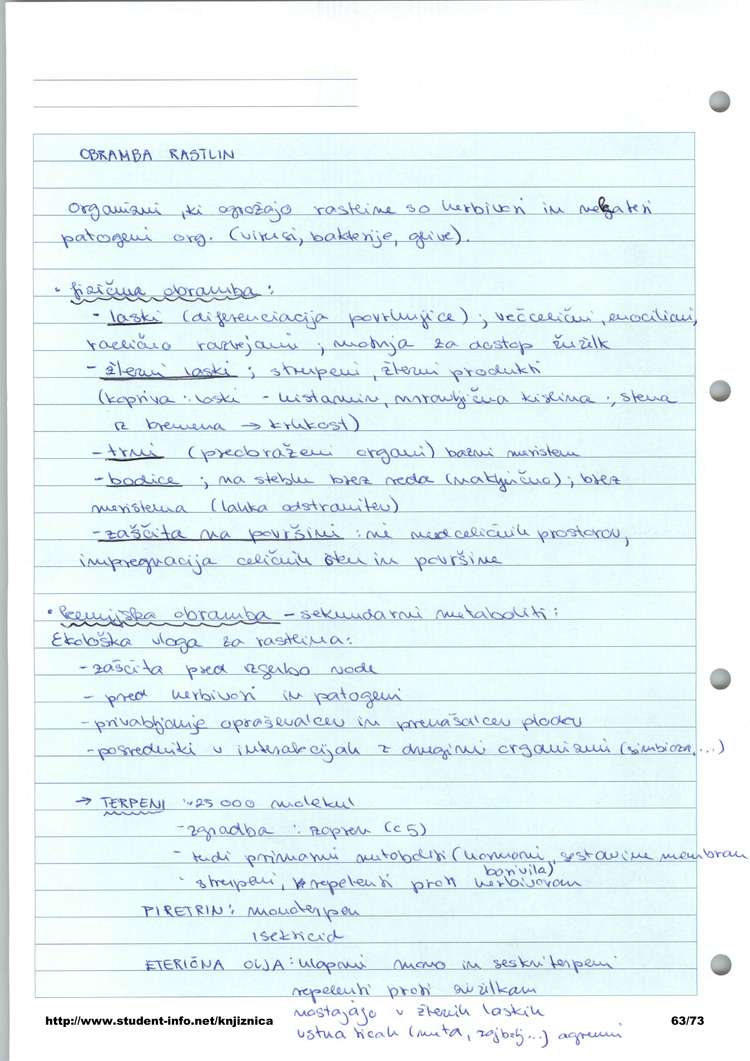 OBRAMBA RASTLIN
Organizmi, ki ogrožajo rastline so herbivori in nekateri
patogeni org. (virusi, bakterije, glive).
• fizična obramba:
- laski (diferenciacija povrhnjice); večcelični, enocelični,
različno razvejani; motnja za dostop žuželk
- žlezni laski; strupeni, žlezni produkti
(kopriva: laski - histamin, mravljična kislina; stena
iz kremena → krhkost)
- trni (preobraženi organi) bazni meristem
- bodice; na steblu brez reda (naključno); brez
meristema (lahka odstranitev)
- zaščita na površini: ni medceličnih prostorov,
impregnacija celičnih sten in površine
• kemijska obramba - sekundarni metaboliti:
Ekološka vloga za rastlina:
- zaščita pred izgubo vode
- pred herbivori in patogeni
- privabljanje opraševalcev in prenašalcev plodov
- posredniki v interakcijah z drugimi organizmi (simbioza,...)
→ TERPENI ~25 000 molekul
- zgradba: izopren (C5)
- tudi primarni metaboliti (hormoni, sestavine membran
barvila)
- strupeni, repelenti proti herbivorom
PIRETRIN: monoterpen
isekticid
ETERIČNA OLJA: hlapni mono in seskviterpeni
repelenti proti žuželkam
nastajajo v žleznih laskih
http://www.student-info.net/knjiznica 63/73
ustnaticah (meta, žajbelj...)